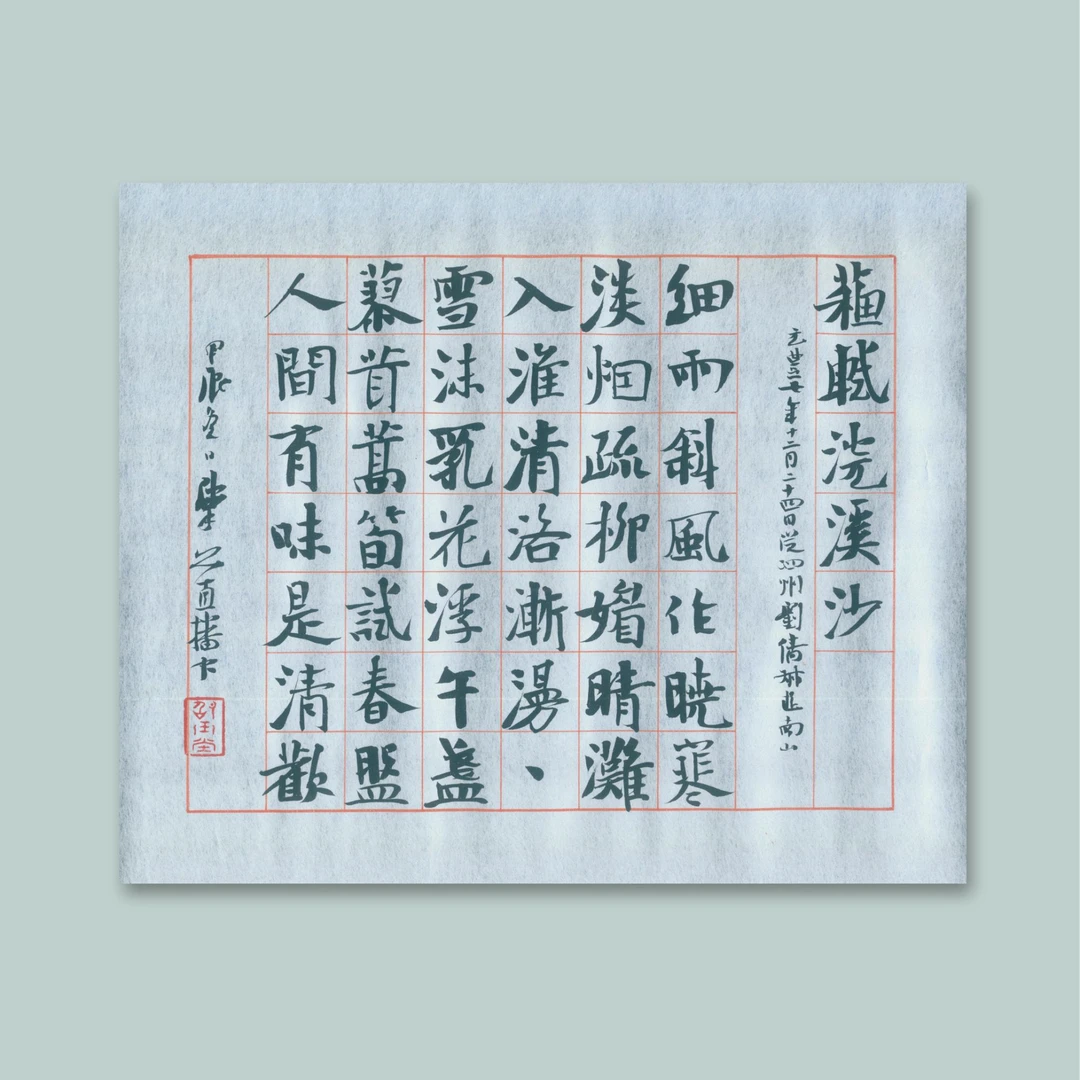 蘓軾浣溪沙
元豐七年十二月二十四日從泗州劉倩叔遊南山
細雨斜風作曉寒
淡烟疏柳媚晴灘
入淮清洛漸漫、
雪沫乳花浮午盞
蓼茸蒿筍試春盤
人間有味是清歡
甲辰冬日 直播